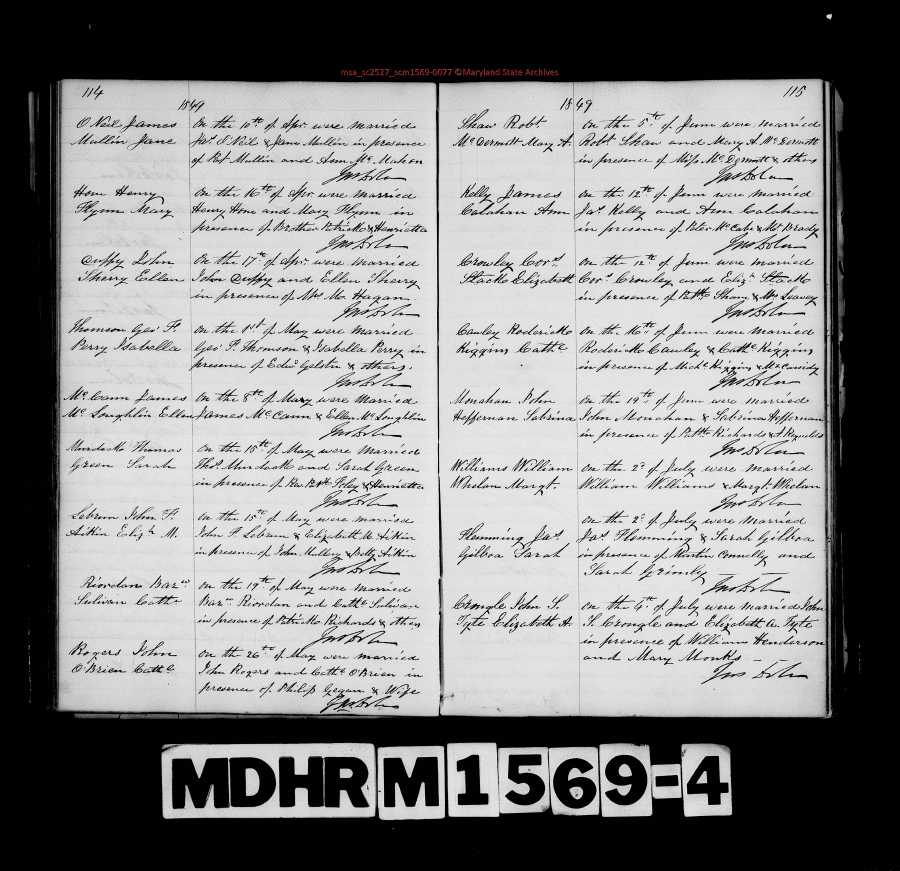 msa_sc2527_scm1569-0077 ©Maryland State Archives
114
1849
O'Neil James
Mullin Jane
On the 10th of Apr. were married
Jas. O'Neil & Jane Mullin in presence
of Pat Mullin and Ann McMahon
Jno Dolan
Home Henry
Flynn Mary
On the 16th of Apr were married
Henry Home and Mary Flynn in
presence of Brother Patrick & Henrietta
Jno Dolan
Cuppy John
Sherry Ellen
On the 17th of Apr. were married
John Cuppy and Ellen Sherry
in presence of Mrs Mc Hagan
Jno Dolan
Thomson Geo. F.
Perry Isabella
On the 1st of May were married
Geo F. Thomson & Isabella Perry in
presence of Edwd Gelston & others.
Jno Dolan
McCann James
McLoughlin Ellen
On the 8th of May were married
James McCann & Ellen McLoughlin
Jno Dolan
Murdock Thomas
Green Sarah
On the 15th of May were married
Thos. Murdock and Sarah Green
in presence of Rev Patk Foley & Henrietta
Jno Dolan
Lebrum John F.
Aitkin Elizth M.
On the 15th of May were married
John F Lebrum & Elizabeth M. Aitkin
in presence of John Mullen & Betty Aitkin
Jno Dolan
Riordan Barw
Sulivan Cathe
On the 19th of May were married
Barw Riordan and Cathe Sulivan
in presence of Patrick Richards & others
Jno Dolan
Rogers John
O'Brien Cathe
On the 26th of May were married
John Rogers and Cathe O'Brien in
presence of Philip Gegan & Wife
Jno Dolan
115
1849
Shaw Robt.
McDermott Mary A.
On the 5th of June were married
Robt Shaw and Mary A. McDermott
in presence of Miss McDermott & others
Jno Dolan
Kelly James
Calahan Ann
On the 12th of June were married
Jas. Kelly and Ann Calahan
in presence of Peter McCabe & Mr Brady
Jno Dolan
Crowley Cors
Stack Elizabeth
On the 12th of June were married
Cors. Crowley and Elizh Stack
in presence of Patk Shany & Mrs Leavey
Jno Dolan
Cauley Roderick
Higgins Cathe
On the 16th of June were married
Roderick Cauley & Cathe Higgins
in presence of Michl Higgins & M Cassidy
Jno Dolan
Monahan John
Heffernan Sabrina
On the 19th of June were married
John Monahan & Sabrina Heffernan
in presence of Patk Richards & A. Reynolds
Jno Dolan
Williams William
Whelan Margt.
On the 2d of July were married
William Williams & Margt. Whelan
Jno Dolan
Flemming Jas
Gilboa Sarah
On the 2d of July were married
Jas Flemming & Sarah Gilboa
in presence of Martin Connelly and
Sarah Grimly
Jno Dolan
Crongle John S.
Tyte Elizabeth A
On the 4th of July were married John
S. Crongle and Elizabeth A. Tyte
in presence of William Henderson
and Mary Monks
Jno Dolan
MDHR M 1569-4